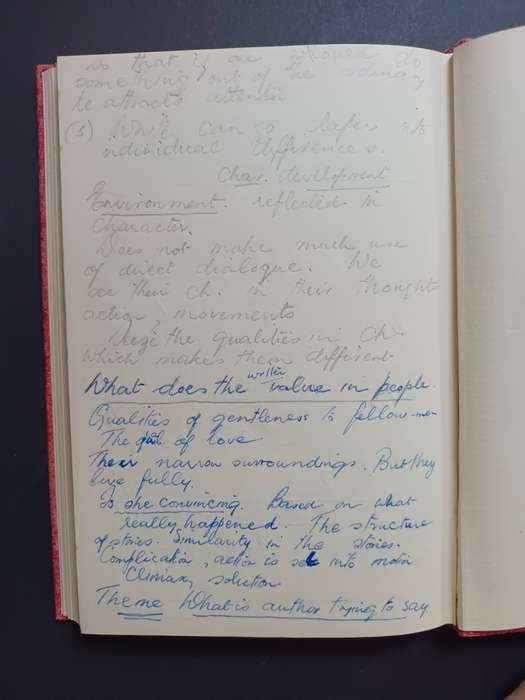 is that if one should do
something out of the ordinary
he attracts attention
(3) Writer can go deeper into
individual differences.
Char. development
Environment. reflected in
character.
Does not make much use
of direct dialogue. We
see their ch. in their thoughts
action, movements
Seize the qualities in Ch.
which makes them different
What does the writer value in people.
Qualities of gentleness to fellow-men
The qual. of love
Their narrow surroundings. But they
live fully.
Is she convincing. Based on what
really happened. The structure
of stories. Similarity in the stories.
Complication, action is set into motion
Climax, solution
Theme What is author trying to say